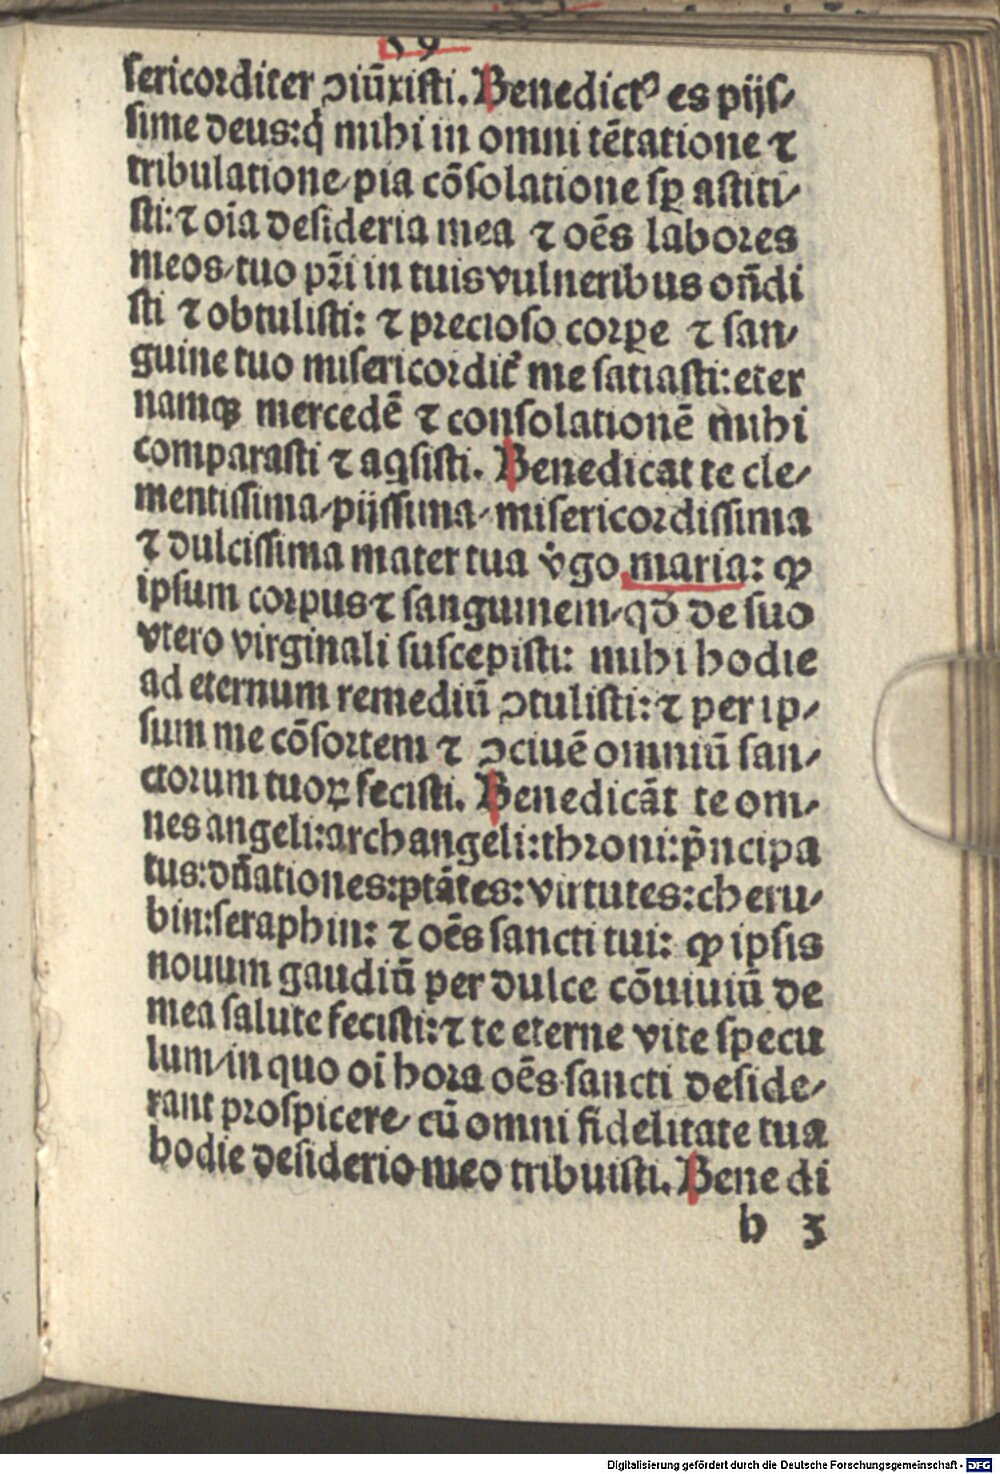 59
sericorditer ↄiūxisti. Benedictꝰ es pijs⸗
sime deus:q̇ mihi in omni tētatione ⁊
tribulatione/pia cōsolatione sꝑ astiti⸗
sti:⁊ oīa desideria mea ⁊ oēs labores
meos/tuo pr̄i in tuis vulneribus oñdi
sti ⁊ obtulisti: ⁊ precioso corꝑe ⁊ san⸗
guine tuo misericordit̄ me satiasti:eter
namqꝫ mercedē ⁊ consolationē mihi
comparasti ⁊ aq̇sisti. Benedicat te cle⸗
mentissima/pijssima/misericordissima
⁊ dulcissima mater tua v̇go maria: ꝙ
ipsum corpus ⁊ sanguinem/qđ de suo
vtero virginali suscepisti: mihi hodie
ad eternum remediū ↄtulisti:⁊ per ip⸗
sum me cōsortem ⁊ ↄciuē omniū san⸗
ctorum tuoꝝ fecisti. Benedicāt te om⸗
nes angeli:archangeli:throni:p̄ncipa
tus:dñationes:ptātes:virtutes:cheru⸗
bin:seraphin: ⁊ oēs sancti tui: ꝙ ipsis
nouum gaudiū per dulce cōuiuiū de
mea salute fecisti:⁊ te eterne vite specu
lum/in quo oī hora oēs sancti deside⸗
rant prospicere/cū omni fidelitate tua
hodie desiderio meo tribuisti. Benedi
b 3
Digitalisierung gefördert durch die Deutsche Forschungsgemeinschaft - DFG